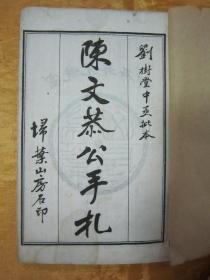 劉樹堂中丞批本
陳文恭公手札
埽葉山房石印